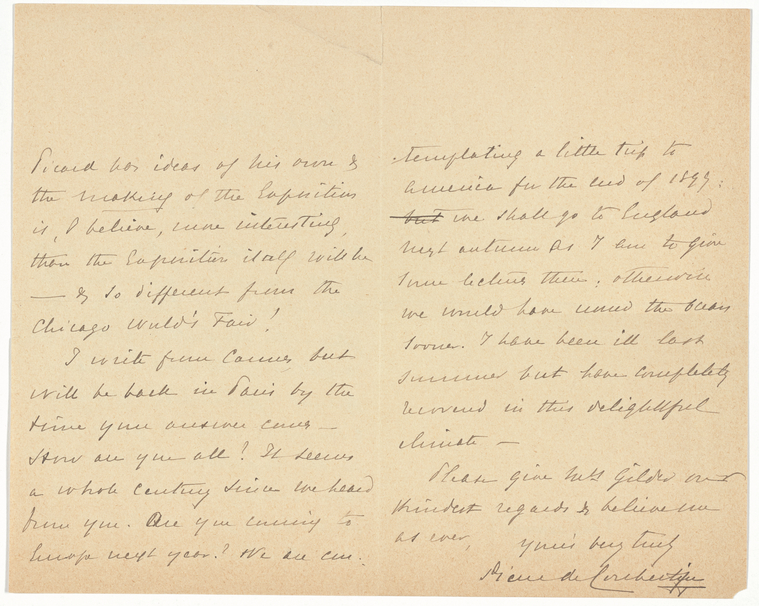 Picard has ideas of his own &
the making of the Exposition
is, I believe, more interesting
than the Exposition itself will be
— & so different from the
Chicago World's Fair!
I write from Cannes but
will be back in Paris by the
time your answer comes —
How are you all? It seems
a whole century since we heard
from you. Are you coming to
Europe next year? We are con-
-templating a little trip to
America for the end of 1899:
but we shall go to England
next autumn as I am to give
some lectures there; otherwise
we would have crossed the Ocean
sooner. I have been ill last
summer but have completely
recovered in this delightful
climate —
Please give Mrs Gilder our
kindest regards & believe me
as ever, yours very truly
Pierre de Coubertin